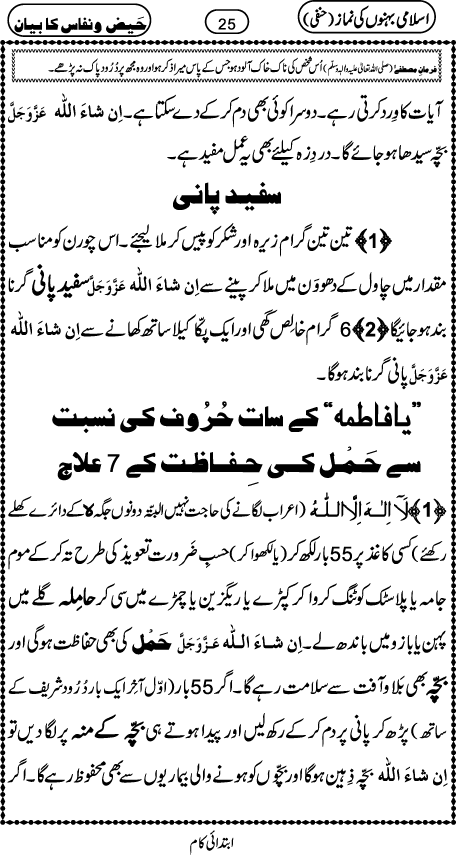 اسلامی بہنوں کی نماز (حنفی)
25
حَیض و نفاس کا بیان
فرمانِ مصطفےٰ (صلی اللہ تعالیٰ علیہ والہٖ وسلّم) اُس شخص کی ناک خاک آلود ہو جس کے پاس میرا ذکر ہو اور وہ مجھ پر دُرُود پاک نہ پڑھے۔
آیات کا وِرد کرتی رہے۔ دوسرا کوئی بھی دم کر کے دے سکتا ہے۔ اِن شاءَ اللہ عَزَّوَجَلَّ
بچّہ سیدھا ہو جائے گا۔ دردِ زہ کیلئے بھی یہ عمل مفید ہے۔
سفید پانی
﴿1﴾ تین تین گرام زیرہ اور شکر کو پیس کر ملا لیجئے۔ اس چورن کو مناسب
مقدار میں چاول کے دھووَن میں ملا کر پینے سے اِن شاءَ اللہ عَزَّوَجَلَّ سفید پانی گرنا
بند ہو جائیگا ﴿2﴾ 6 گرام خالِص گھی اور ایک پکّا کیلا ساتھ کھانے سے اِن شاءَ اللہ
عَزَّوَجَلَّ پانی گرنا بند ہو گا۔
”یا فاطمہ“ کے سات حُرُوف کی نسبت
سے حَمْل کی حِفاظت کے 7 علاج
﴿1﴾ لَآ اِلٰـہَ اِلَّا اللہُ (اعراب لگانے کی حاجت نہیں البتّہ دونوں جگہ ہ کے دائرے کھلے
رکھئے) کسی کاغذ پر 55 بار لکھ کر (یا لکھوا کر) حسبِ ضَرورت تعویذ کی طرح تہ کر کے موم
جامہ یا پلاسٹک کوٹنگ کروا کر کپڑے یا ریگزین یا چمڑے میں سی کر حامِلہ گلے میں
پہن یا بازو میں باندھ لے۔ اِن شاءَ اللہ عَزَّوَجَلَّ حَمْل کی بھی حفاظت ہو گی اور
بچّہ بھی بَلا و آفت سے سلامت رہے گا۔ اگر 55 بار (اوّل آخِر ایک بار دُرُود شریف کے
ساتھ) پڑھ کر پانی پر دم کر کے رکھ لیں اور پیدا ہوتے ہی بچّہ کے منہ پر لگا دیں تو
اِن شاءَ اللہ بچّہ ذِہین ہوگا اور بچّوں کو ہونے والی بیماریوں سے بھی محفوظ رہے گا۔ اگر
ابتدائی کام